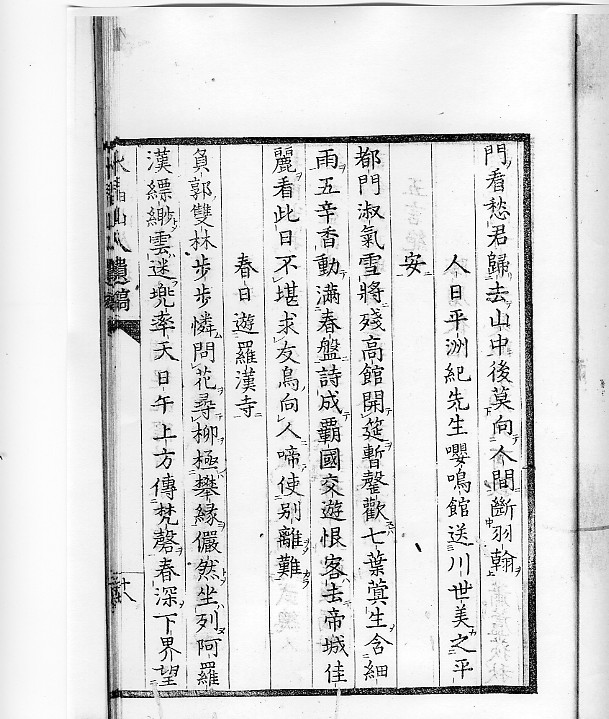 門看愁君歸去山中後莫向人間斷羽翰
人日平洲紀先生嚶鳴館送川世美之平
安
都門淑氣雪將殘高館開筵暫罄歡七葉蓂生含細
雨五辛香動滿春盤詩成覇國交遊恨客去帝城佳
麗看此日不堪求友鳥向人啼使別離難
春日遊羅漢寺
負郭雙林步步憐問花尋柳極攀緣儼然坐列阿羅
漢縹緲雲迷兜率天日午上方傳梵磬春深下界望
山人遺稿